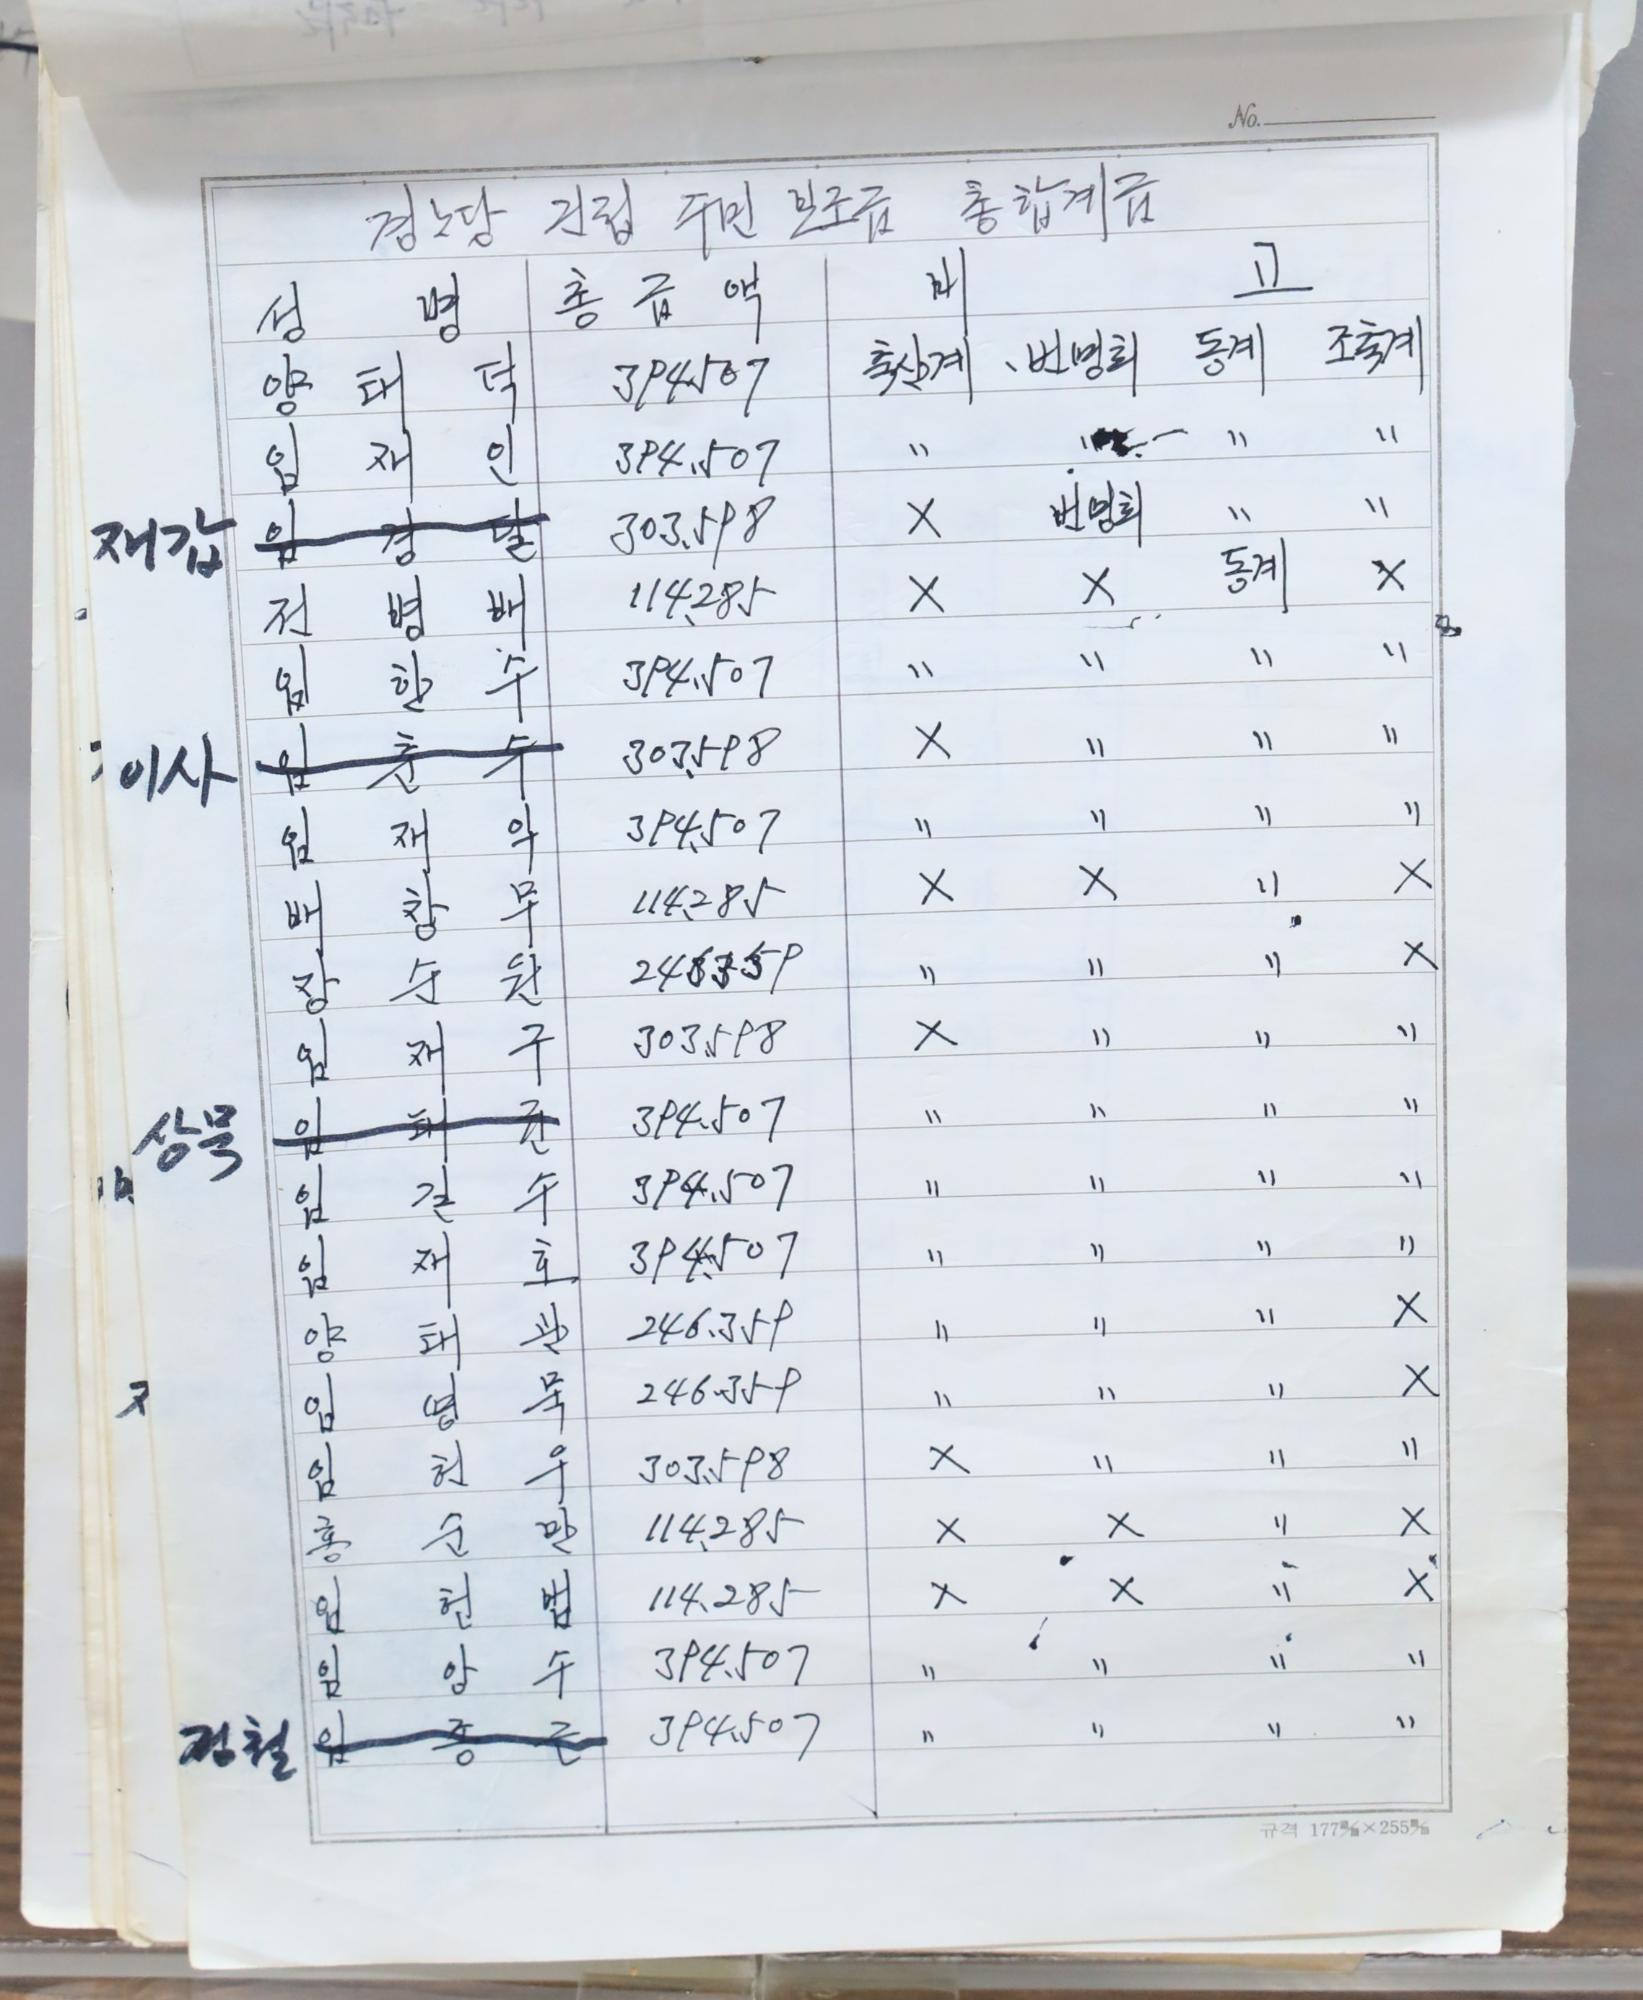 No.
경노당 건립 주민 보조금 총합계금
성 명 총금액 비 고
양태덕 394.507 축산계 、번명회 동계 조축계
임재인 394.507 〃 〃 〃 〃
재갑 임경달 303.598 X 번명회 〃 〃
전병배 114.285 X X 동계 X
임한수 394.507 〃 〃 〃 〃
이사 임춘수 303.598 X 〃 〃 〃
임재익 394.507 〃 〃 〃 〃
배창무 114.285 X X 〃 X
장수원 246.359 〃 〃 〃 X
임재구 303.598 X 〃 〃 〃
상묵 임태근 394.507 〃 〃 〃 〃
임길수 394.507 〃 〃 〃 〃
임재호 394.507 〃 〃 〃 〃
양태관 246.359 〃 〃 〃 X
임명묵 246.359 〃 〃 〃 X
임헌우 303.598 X 〃 〃 〃
홍순만 114.285 X X 〃 X
임헌범 114.285 X X 〃 X
임양수 394.507 〃 〃 〃 〃
정철 임종근 394.507 〃 〃 〃 〃
규격 177㎜×255㎜